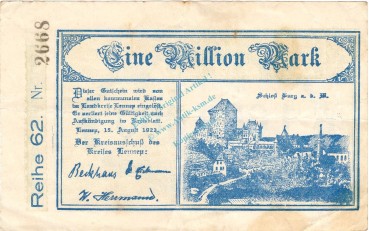 Eine Million Mark
Dieser Gutschein wird von
allen kommunalen Kassen
im Landkreise Lennep eingelöst.
Er verliert seine Gültigkeit nach
Aufkündigung im Kreisblatt.
Lennep, 13. August 1923.
Der Kreisausschuß des
Kreises Lennep:
Beckhaus
W. Hermanns
Schloß Burg a. d. W.
Reihe 62. Nr. 2668